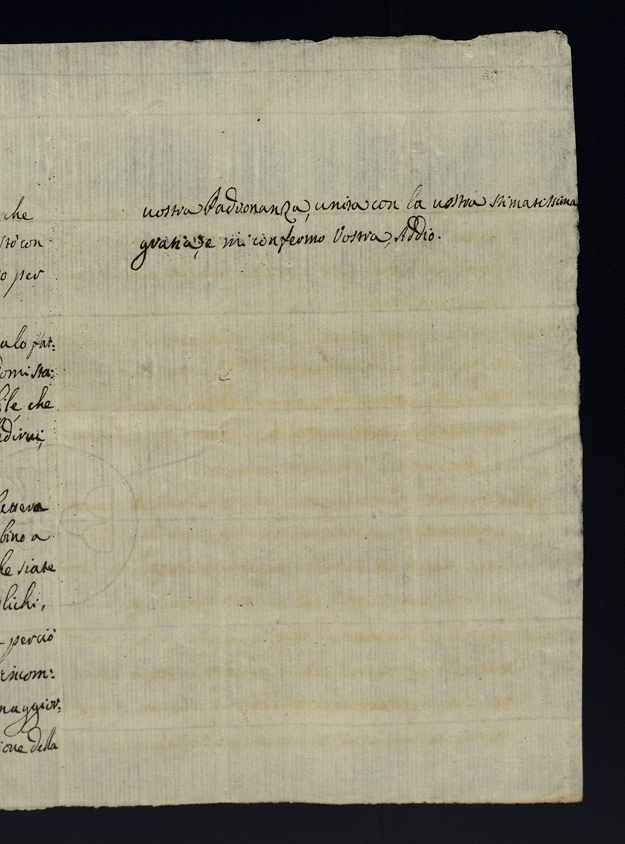 che
sto con
o per
ulo fat:
domi sta:
ile che
edirvi,
lettera
bino a
he siate
blichi,
perciò
rincom:
maggior:
ione della
vostra Padronanza, unita con la vostra stimatissima
gratia, e mi confermo Vostra, Addio.